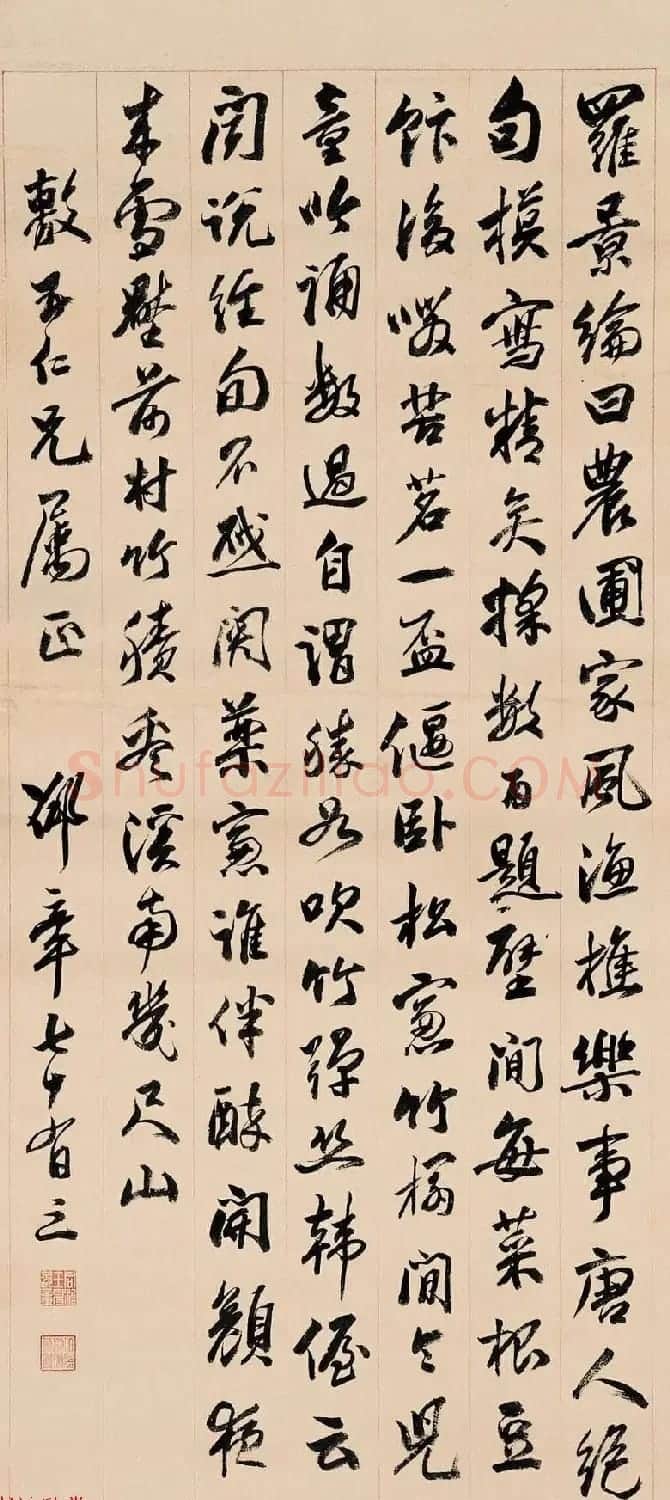 羅景綸曰農圃家風漁樵樂事唐人絕
句模寫精矣採數百題壁間每菜根豆
飰後啜苦茗一盃偃臥松窻竹榻間令兒
童吟誦數過自謂勝如吹竹彈絲韓偓云
聞說經旬不啟關藥窻誰伴醉開顏夜
來雪壓前村竹賸看溪南幾尺山
敷五仁兄屬正 邵章七十有三
Shufaziliao.COM